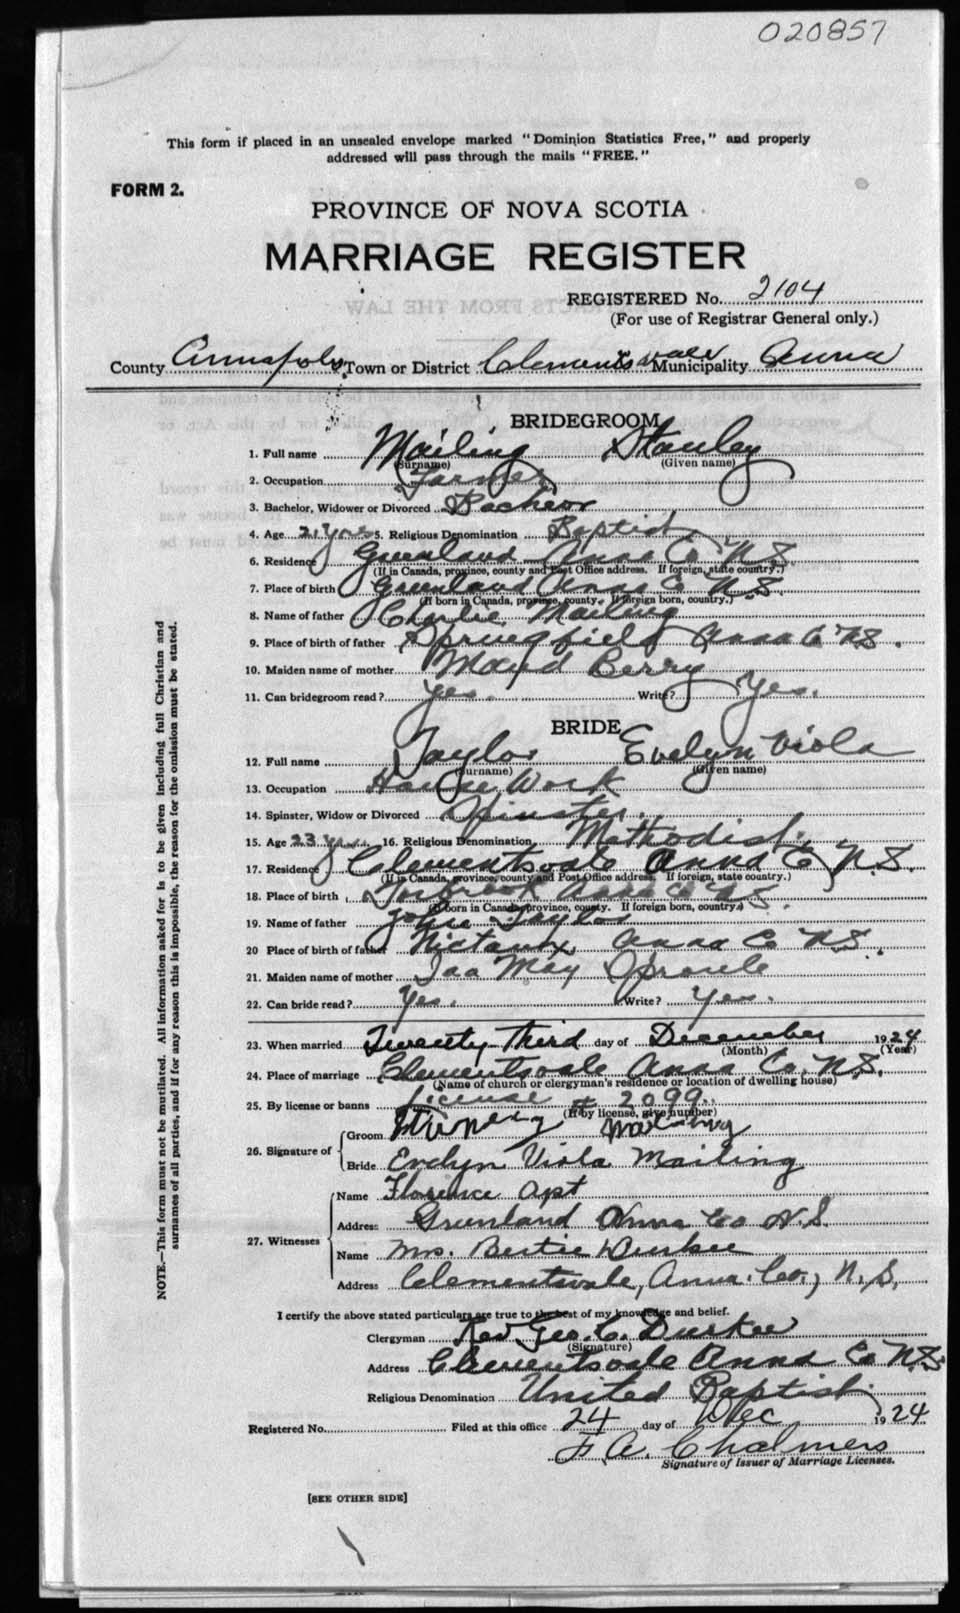 020857
This form if placed in an unsealed envelope marked "Dominion Statistics Free," and properly
addressed will pass through the mails "FREE."
FORM 2.
PROVINCE OF NOVA SCOTIA
MARRIAGE REGISTER
REGISTERED No. 2104
(For use of Registrar General only.)
County Annapolis Town or District Clementsvale Municipality Anna
BRIDEGROOM
1. Full name Mailing Stanley
(Surname) (Given name)
2. Occupation Farmer
3. Bachelor, Widower or Divorced Bachelor
4. Age 21 yrs 5. Religious Denomination Baptist
6. Residence Greenland Anna Co N.S.
(If in Canada, province, county and Post Office address. If foreign, state country.)
7. Place of birth Greenland Anna Co N.S.
(If born in Canada, province, county. If foreign born, country.)
8. Name of father Charlie Mailing
9. Place of birth of father Springfield Anna Co N.S.
10. Maiden name of mother Maud Berry
11. Can bridegroom read? Yes. Write? Yes.
BRIDE
12. Full name Taylor Evelyn Viola
(Surname) (Given name)
13. Occupation House Work
14. Spinster, Widow or Divorced Spinster.
15. Age 23 yrs 16. Religious Denomination Methodist.
17. Residence Clementsvale Anna Co N.S.
(If in Canada, province, county and Post Office address. If foreign, state country.)
18. Place of birth Torbrook Anna Co N.S.
(If born in Canada, province, county. If foreign born, country.)
19. Name of father Taylor
20 Place of birth of father Nictaux Anna Co N.S.
21. Maiden name of mother Ida May Sproule
22. Can bride read? Yes. Write? Yes.
23. When married Twenty third day of December 1924
(Month) (Year)
24. Place of marriage Clementsvale Anna Co. N.S.
(Name of church or clergyman's residence or location of dwelling house)
25. By license or banns License # 2099.
(If by license, give number)
26. Signature of
Groom Mailing
Bride Evelyn Viola Mailing
27. Witnesses
Name Florence Apt
Address Greenland Anna Co N.S.
Name Mrs. Bertie Durkee
Address Clementsvale, Anna. Co., N.S.
I certify the above stated particulars are true to the best of my knowledge and belief.
Clergyman Rev Geo. C. Durkee
(Signature)
Address Clementsvale Anna Co N.S.
Religious Denomination United Baptist.
Registered No. Filed at this office 24 day of Dec 1924
F. A. Chalmers
Signature of Issuer of Marriage Licenses.
[SEE OTHER SIDE]
NOTE.—This form must not be mutilated. All information asked for is to be given including full Christian and
surnames of all parties, and if for any reason this is impossible, the reason for the omission must be stated.